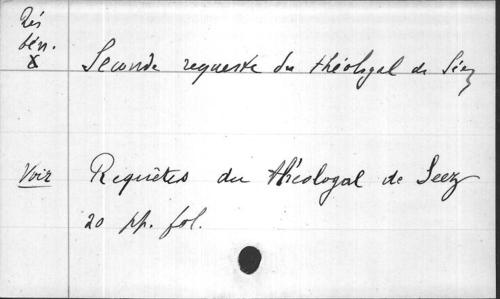 Rés
bén.
X
Seconde requeste du théologal de Séez
Voir Requêtes du théologal de Seez
20 pp. fol.